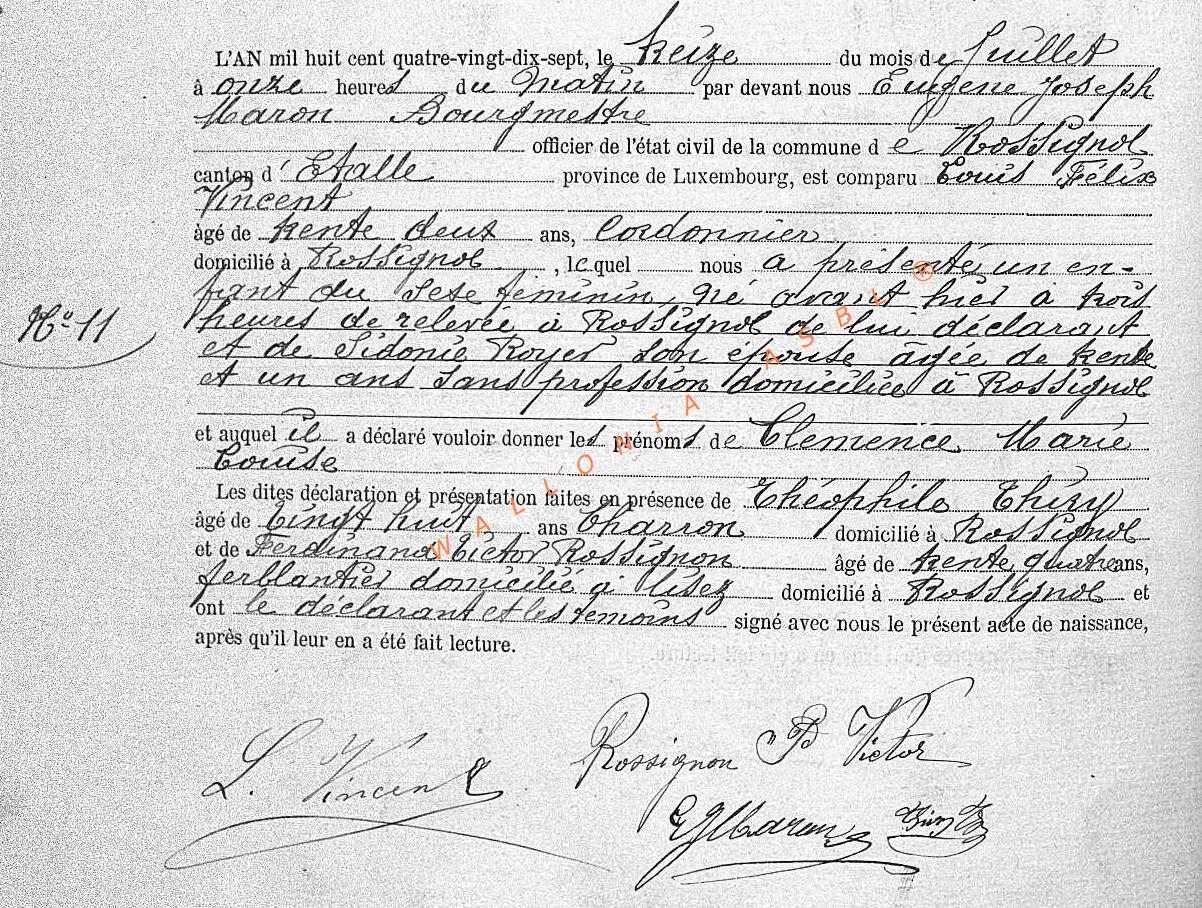 L'AN mil huit cent quatre-vingt-dix-sept, le treize du mois de Juillet
à onze heures du matin par devant nous Eugène Joseph
Maron Bourgmestre
officier de l'état civil de la commune de Rossignol
canton d'Etalle province de Luxembourg, est comparu Louis Félix
Vincent
âgé de trente deux ans, Cordonnier
domicilié à Rossignol, lequel nous a présenté un en-
fant du sexe féminin, né avant hier à trois
N° 11
heures de relevée à Rossignol de lui déclarant
et de Sidonie Royer son épouse âgée de trente
et un ans sans profession domiciliée à Rossignol
et auquel il a déclaré vouloir donner les prénoms de Clémence Marie
Louise
Les dites déclaration et présentation faites en présence de Théophile Thiry
âgé de vingt huit ans Charron domicilié à Rossignol
et de Ferdinand Victor Rossignon âgé de trente quatre ans,
ferblantier domicilié à lisez domicilié à Rossignol et
ont le déclarant et les témoins signé avec nous le présent acte de naissance,
après qu'il leur en a été fait lecture.
WALLONIA ASBL ®
L. Vincent
Rossignon Victor
EJMaron
Thiry